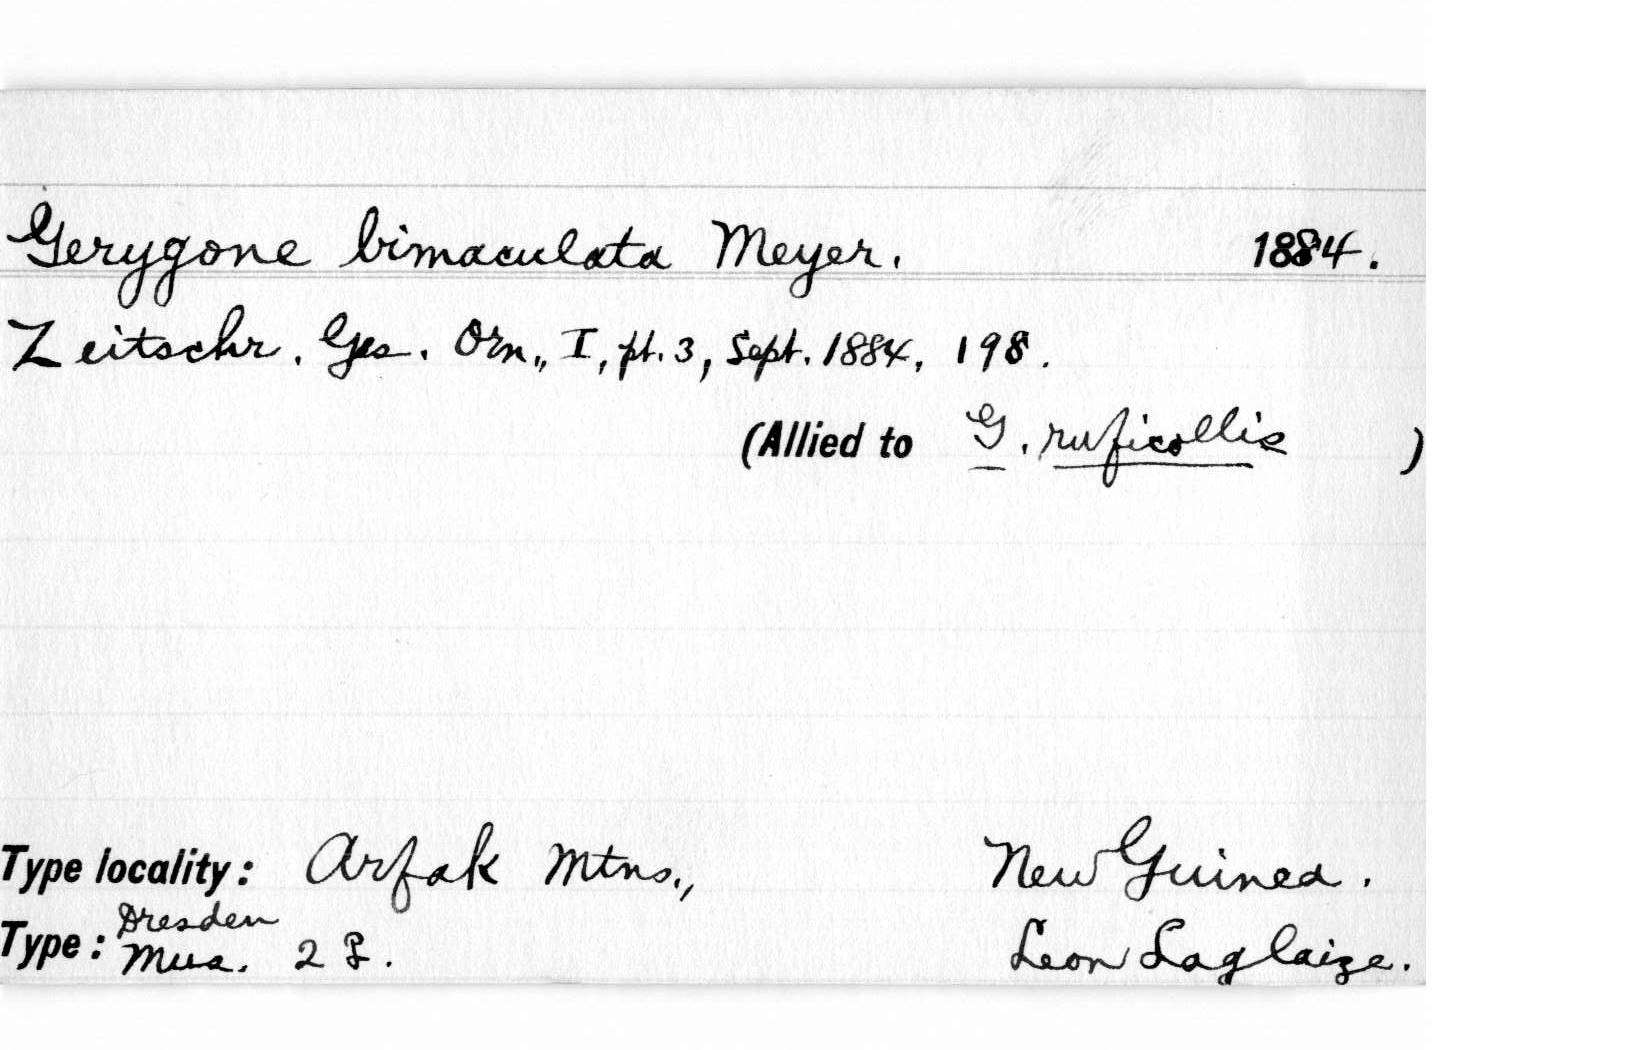 Gerygone bimaculata Meyer. 1884.
Zeitschr. Ges. Orn., I, pt. 3, Sept. 1884, 198.
(Allied to G. ruficollis )
Type locality: Arfak Mtns., New Guinea.
Type: Dresden Mus. 2 Leon Laglaize.